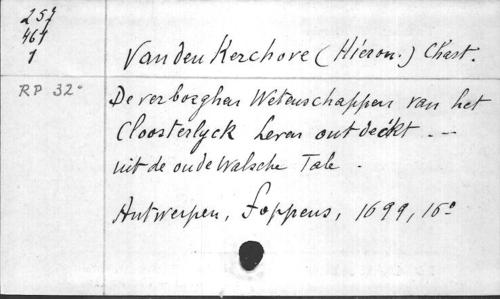 257
461
1
Van den Kerchove (Hieron.) Chart.
RP 32°
De verborghen Wetenschappen van het
Cloosterlyck Leven ontdeckt. —
uit de oude Walsche Tale.
Antwerpen, Foppens, 1699, 16°